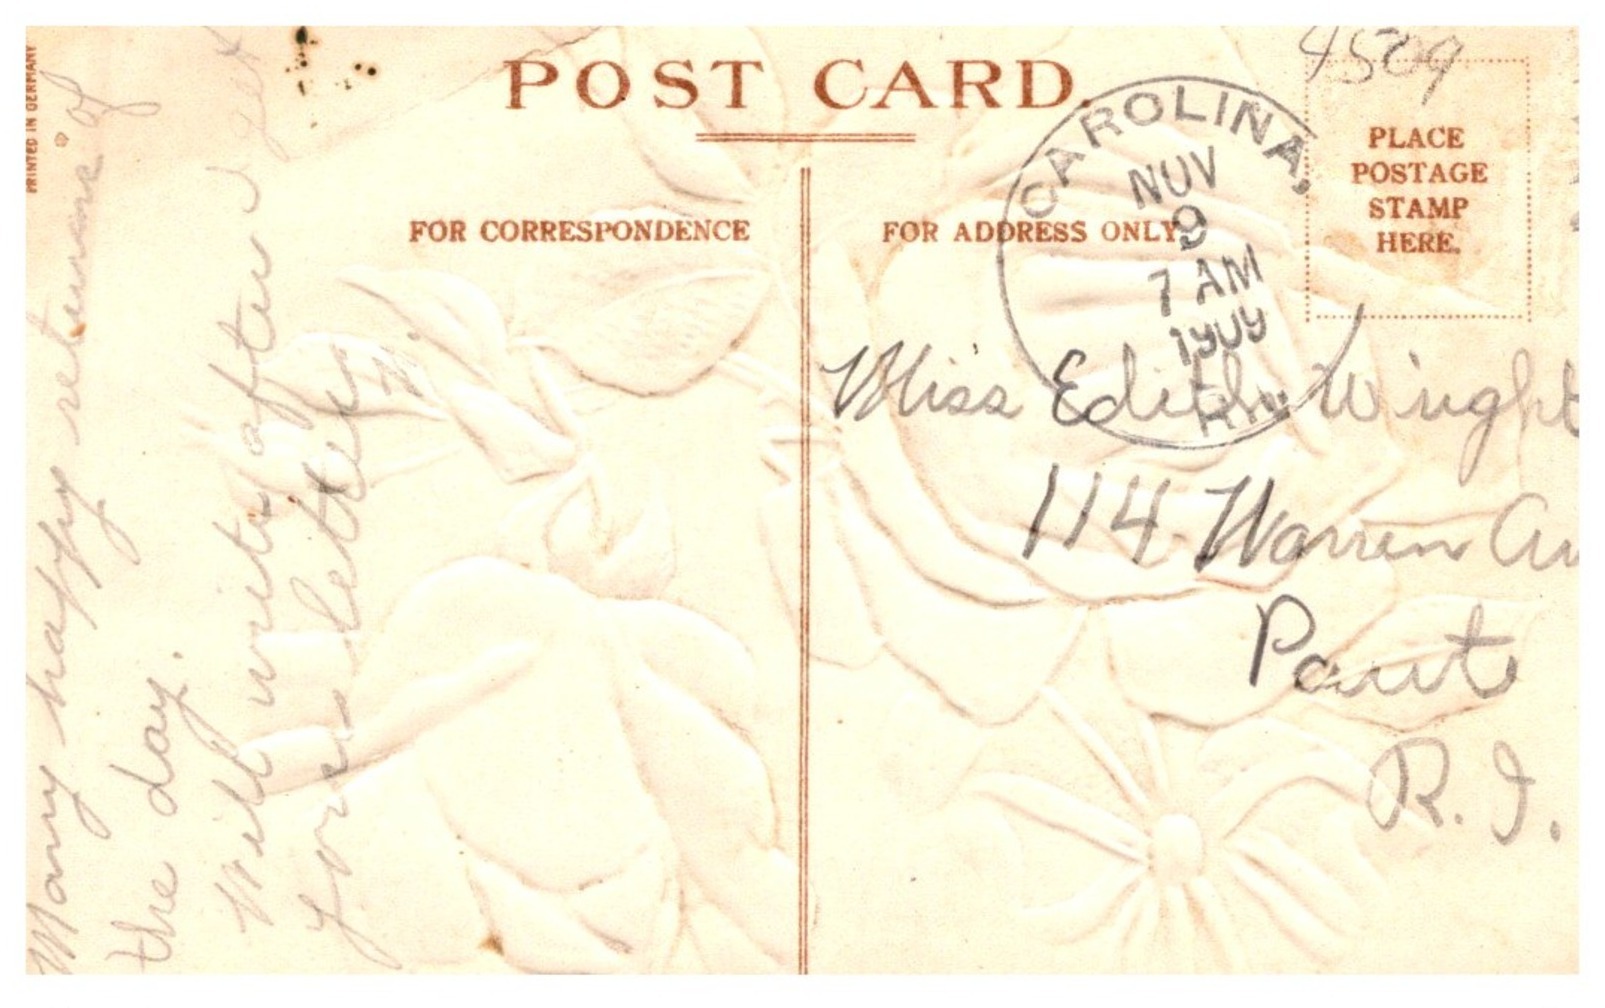 POST CARD.
FOR CORRESPONDENCE
FOR ADDRESS ONLY
PLACE
POSTAGE
STAMP
HERE.
PRINTED IN GERMANY
4509
CAROLINA,
NOV
9
7 AM
1909
R.I.
Miss Edith Wright
114 Warren Av
Pawt
R.I.
Many happy returns of
the day.
Will write after I get
your letter